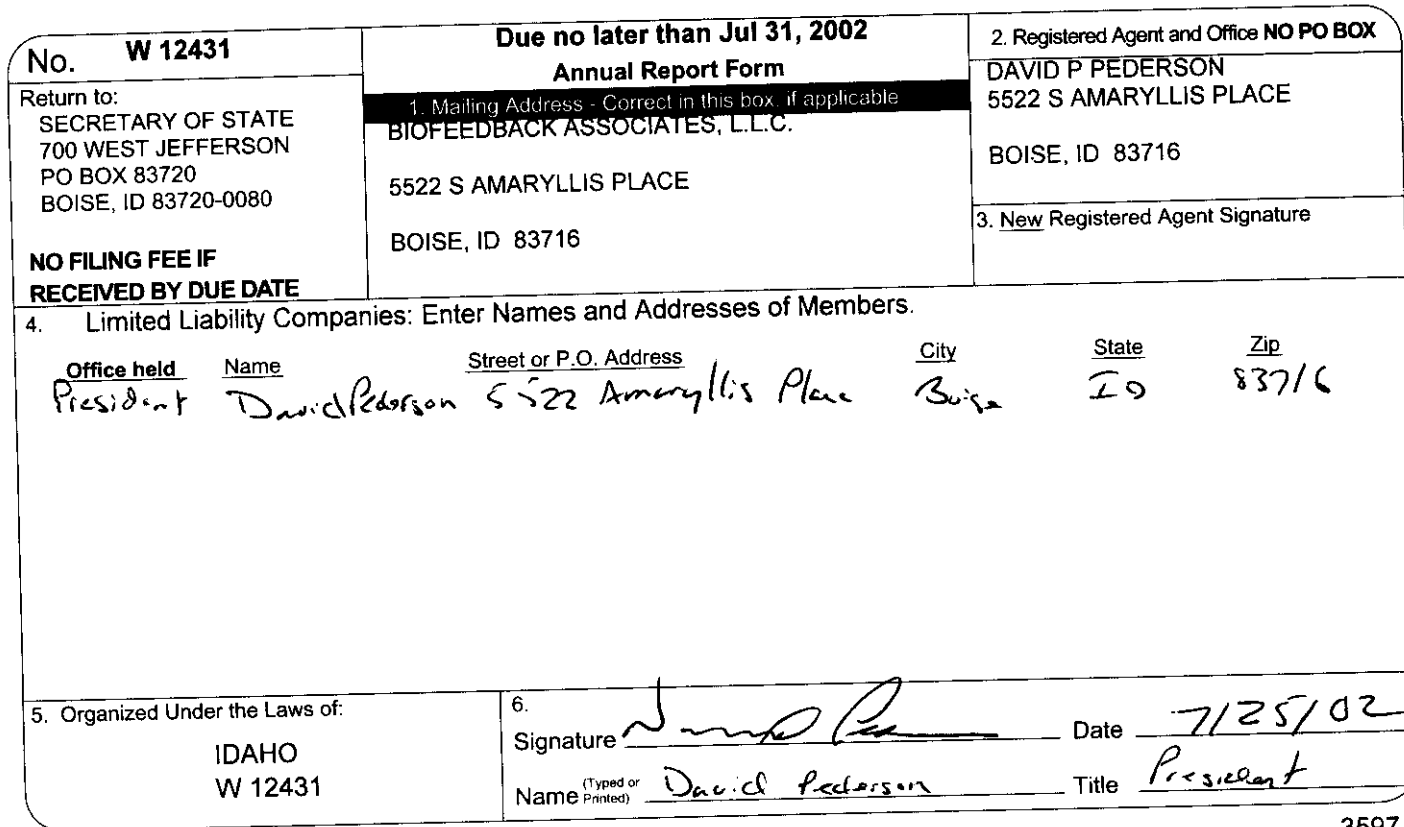 No. W 12431
Return to:
SECRETARY OF STATE
700 WEST JEFFERSON
PO BOX 83720
BOISE, ID 83720-0080
NO FILING FEE IF
RECEIVED BY DUE DATE
Due no later than Jul 31, 2002
Annual Report Form
1. Mailing Address - Correct in this box, if applicable
BIOFEEDBACK ASSOCIATES, L.L.C.
5522 S AMARYLLIS PLACE
BOISE, ID 83716
2. Registered Agent and Office NO PO BOX
DAVID P PEDERSON
5522 S AMARYLLIS PLACE
BOISE, ID 83716
3. New Registered Agent Signature
4. Limited Liability Companies: Enter Names and Addresses of Members.
Office held Name Street or P.O. Address City State Zip
President David Pederson 5522 Amaryllis Place Boise ID 83716
5. Organized Under the Laws of:
IDAHO
W 12431
6.
Signature Date 7/25/02
Name (Typed or Printed) David Pederson Title President
3597